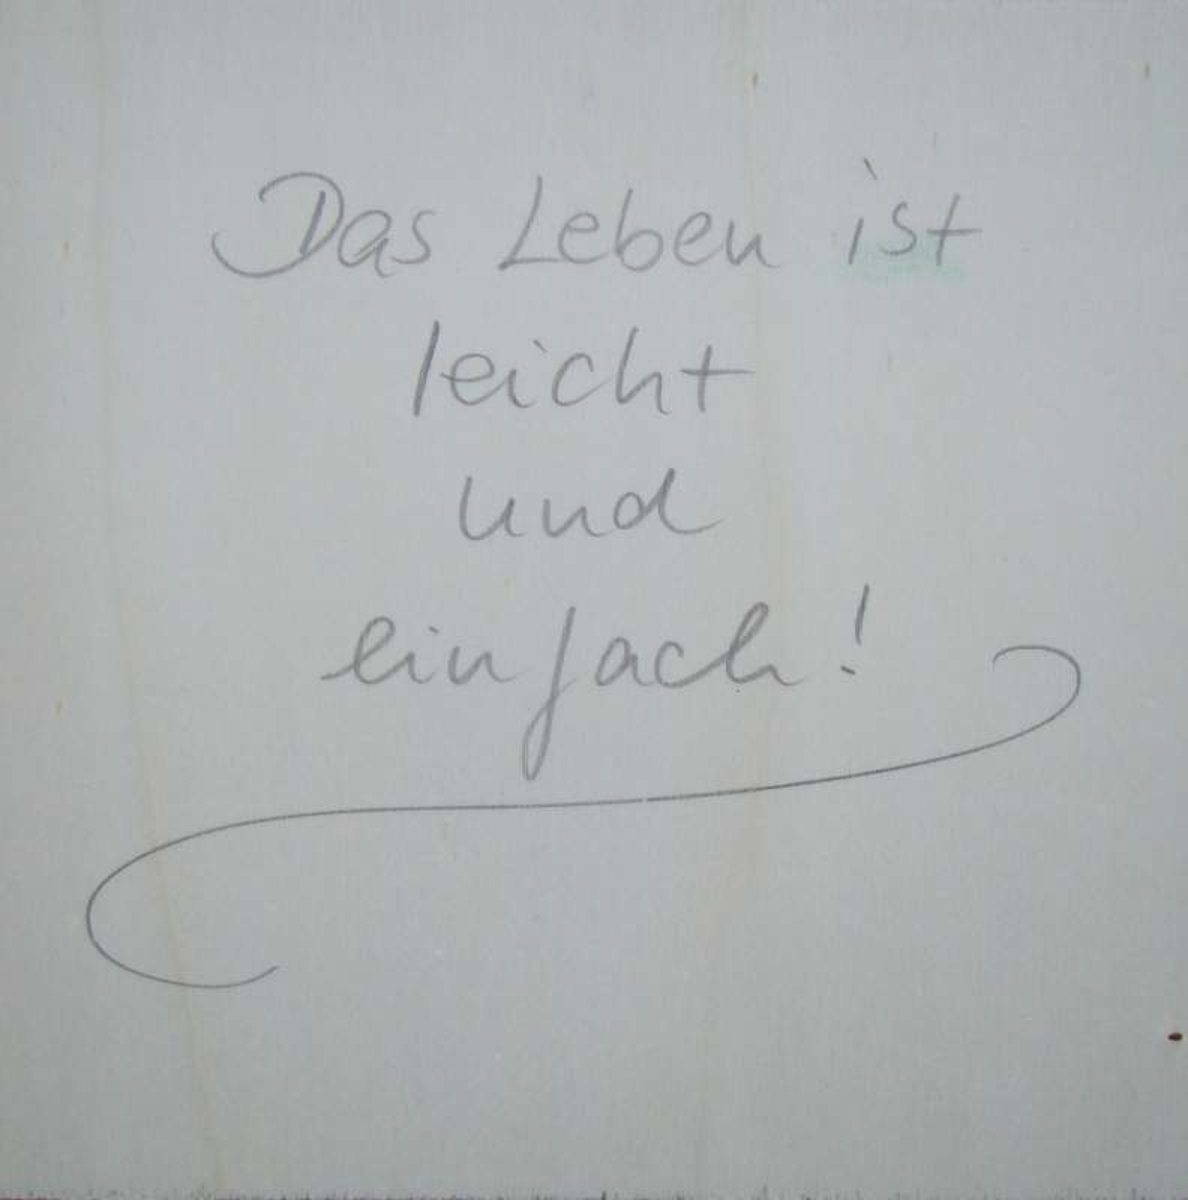 Das Leben ist
leicht
und
einfach!